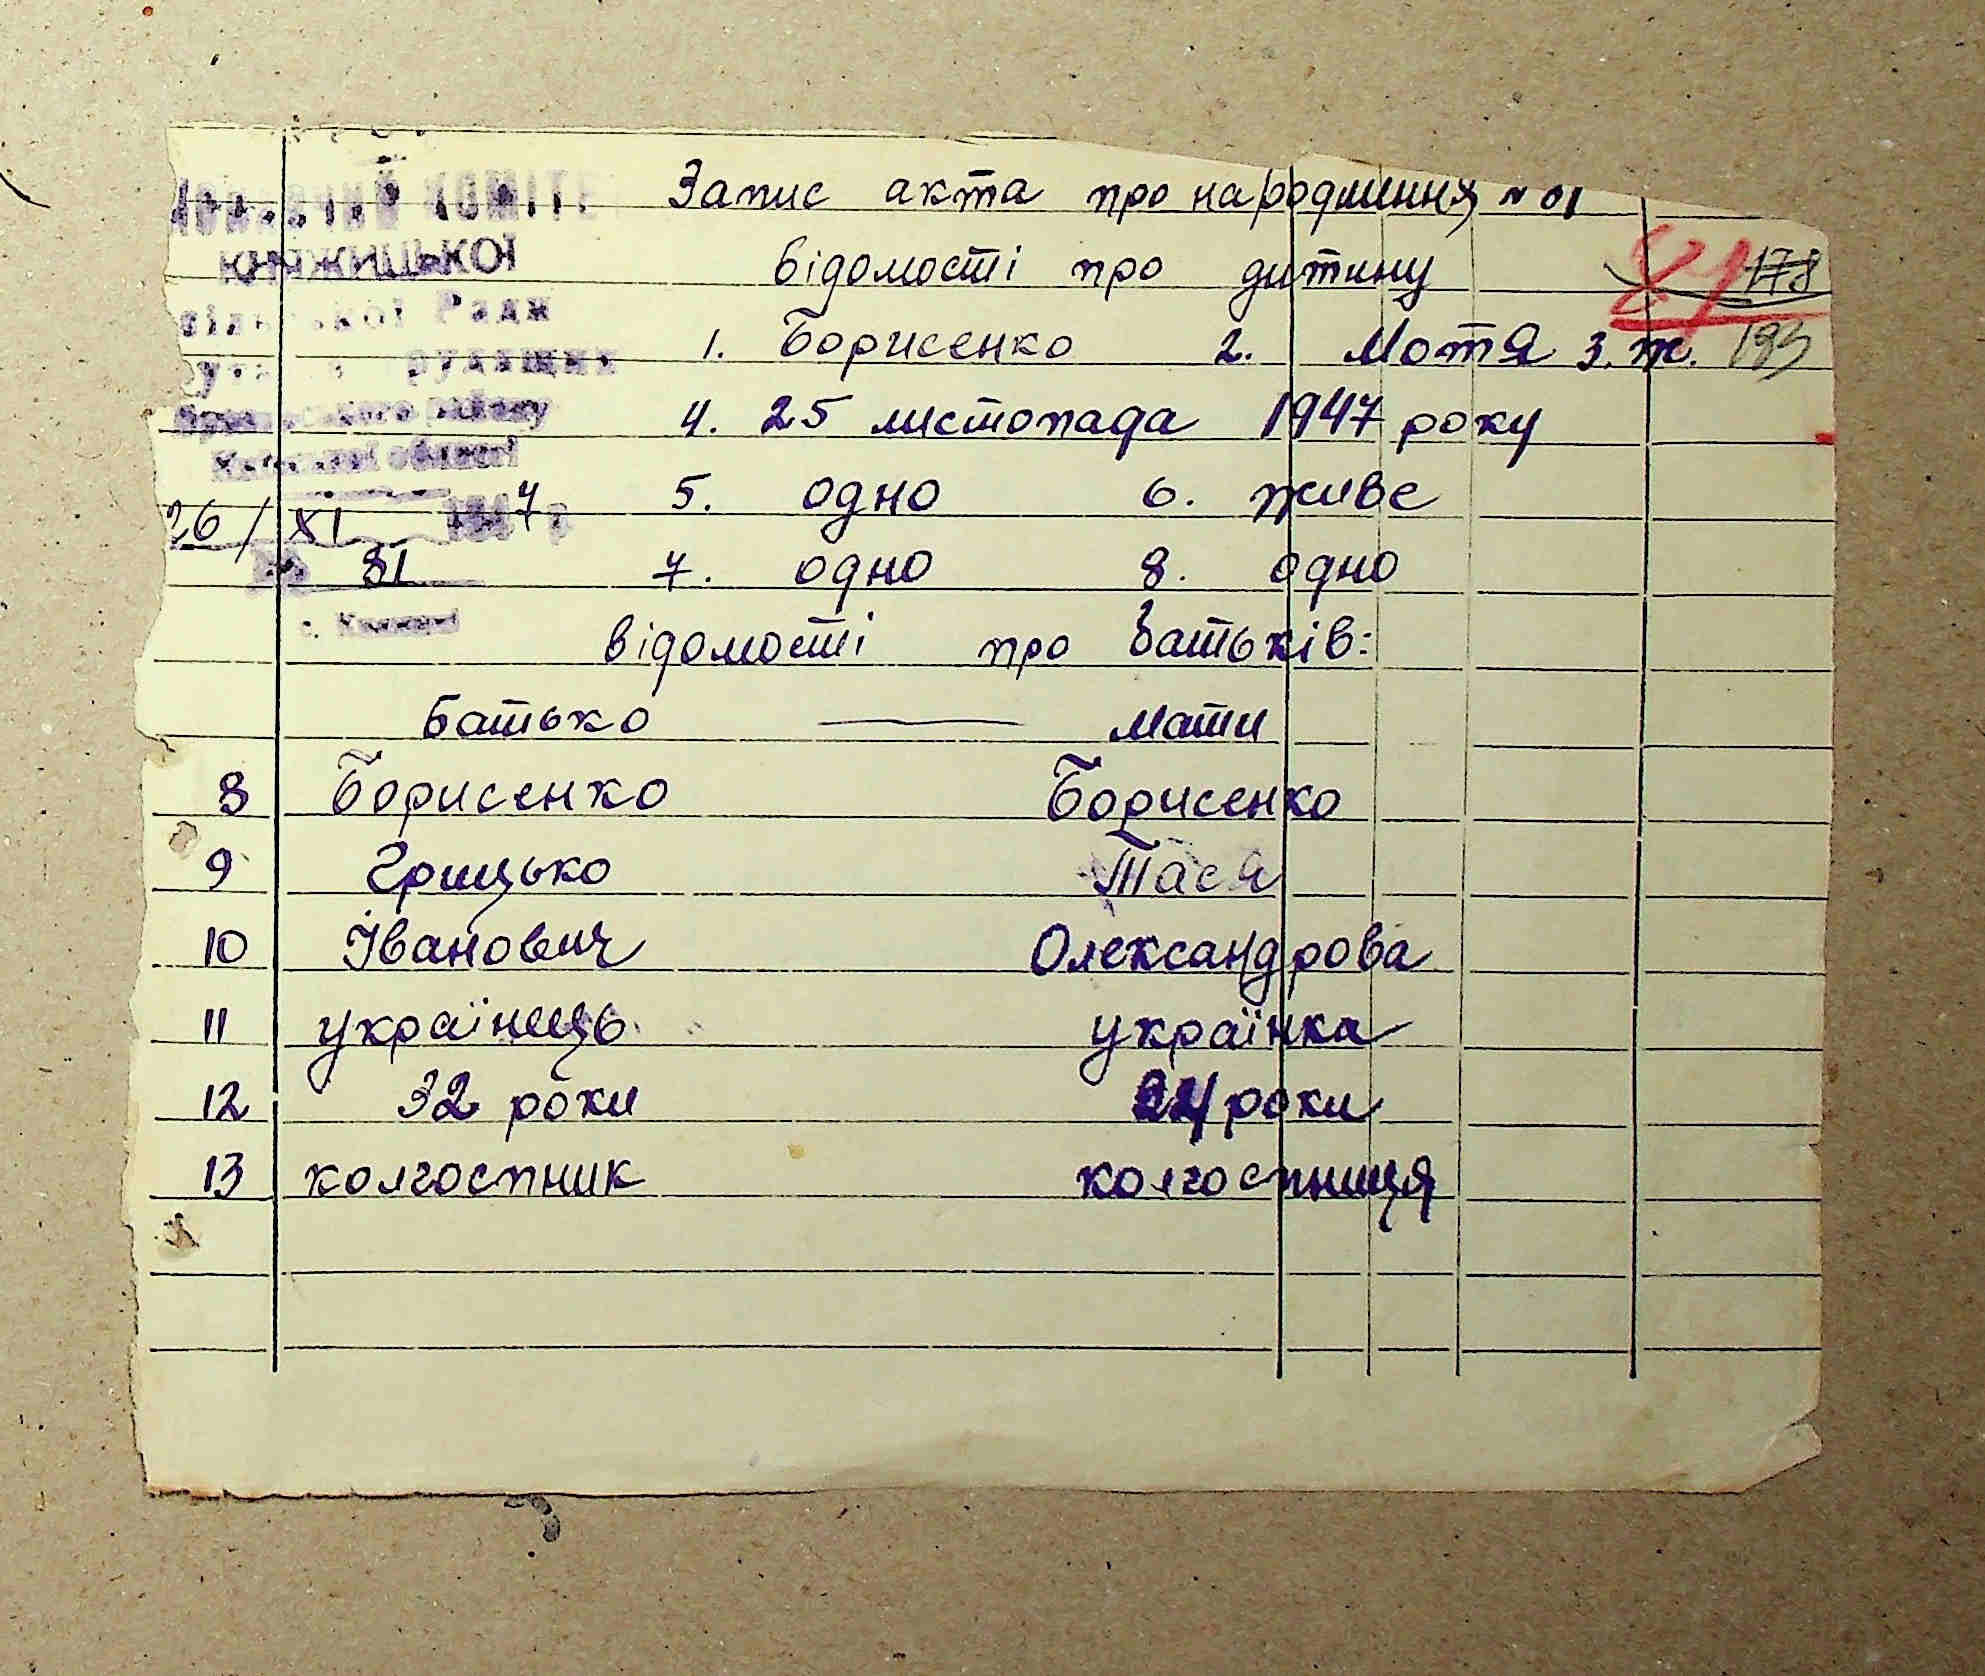 Запис акта про народження № 81
КНЯЖИЦЬКОЇ
відомості про дитину 81 178
Ради
1. Борисенко 2. Мотя 3. ж. 193
4. 25 листопада 1947 року
області
26 / XI 1947 р 5. одно 6. живе
81 7. одно 8. одно
відомості про батьків:
батько — мати
8 Борисенко Борисенко
9 Грицько Тася
10 Іванович Олександрова
11 українець українка
12 32 роки 24 роки
13 колгоспник колгоспниця